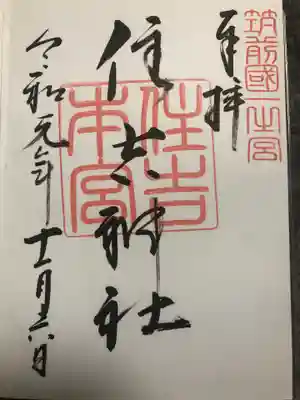 筑前國一之宮
奉拝
住吉神社
住吉本宮
令和元年十一月十六日